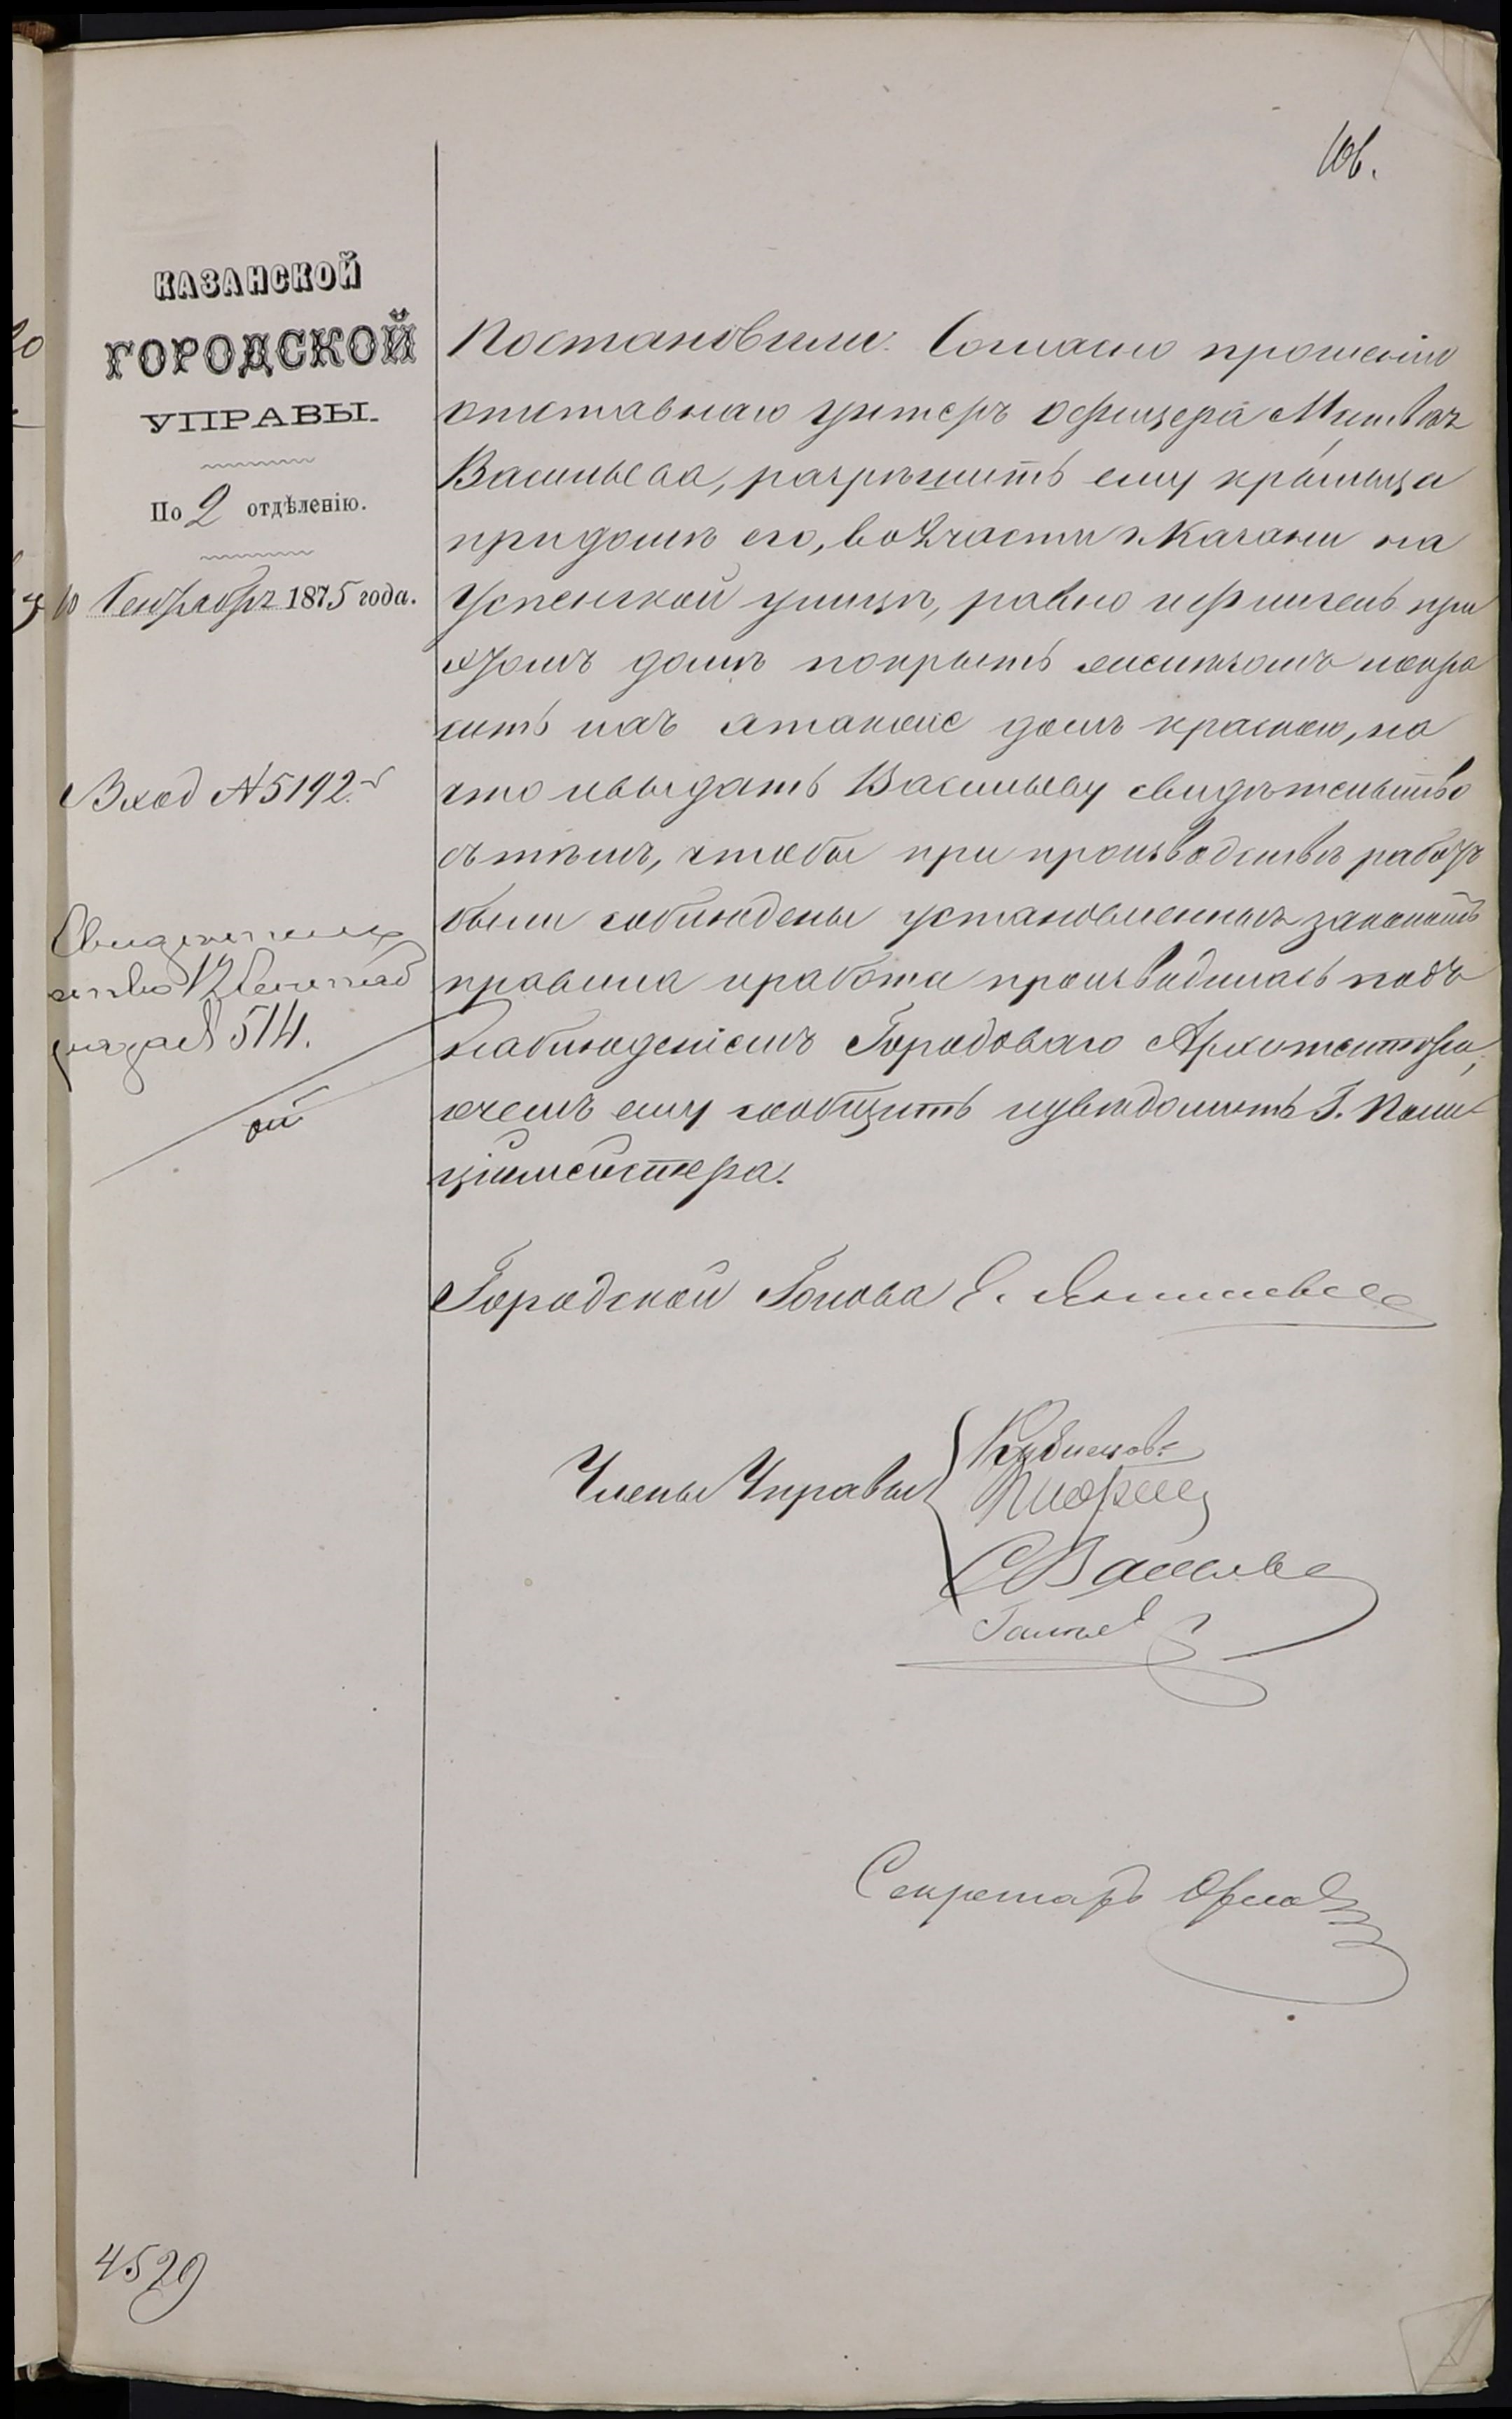 106.
КАЗАНСКОЙ
ГОРОДСКОЙ
УПРАВЫ.
По 2 отдѣленію.
10 Сентября 1875 года.
Вход № 5192.
Свидѣтель
ство 12 Сентяб
ря за № 514.
Постановили: Согласно прошенію
отставнаго унтеръ офицера
Васильева, разрѣшить ему крыльца
при домѣ его, во 2 части г. Казани на
Успенской улицѣ, равно и флигель при
этомъ домѣ покрыть желѣзомъ и окра
сить какъ а также домъ краскою, на
что и выдать Васильеву свидѣтельство
съ тѣмъ, чтобы при производствѣ работъ
были соблюдены установленныя закономъ
правила и работа производилась подъ
наблюденіемъ Городоваго Архитектора,
о чемъ ему сообщить и увѣдомить Г. Поли
ціймейстера.
Городской Голова Е. Янишевскій
Члены Управы
С Васильев
Секретарь Орлов
4529